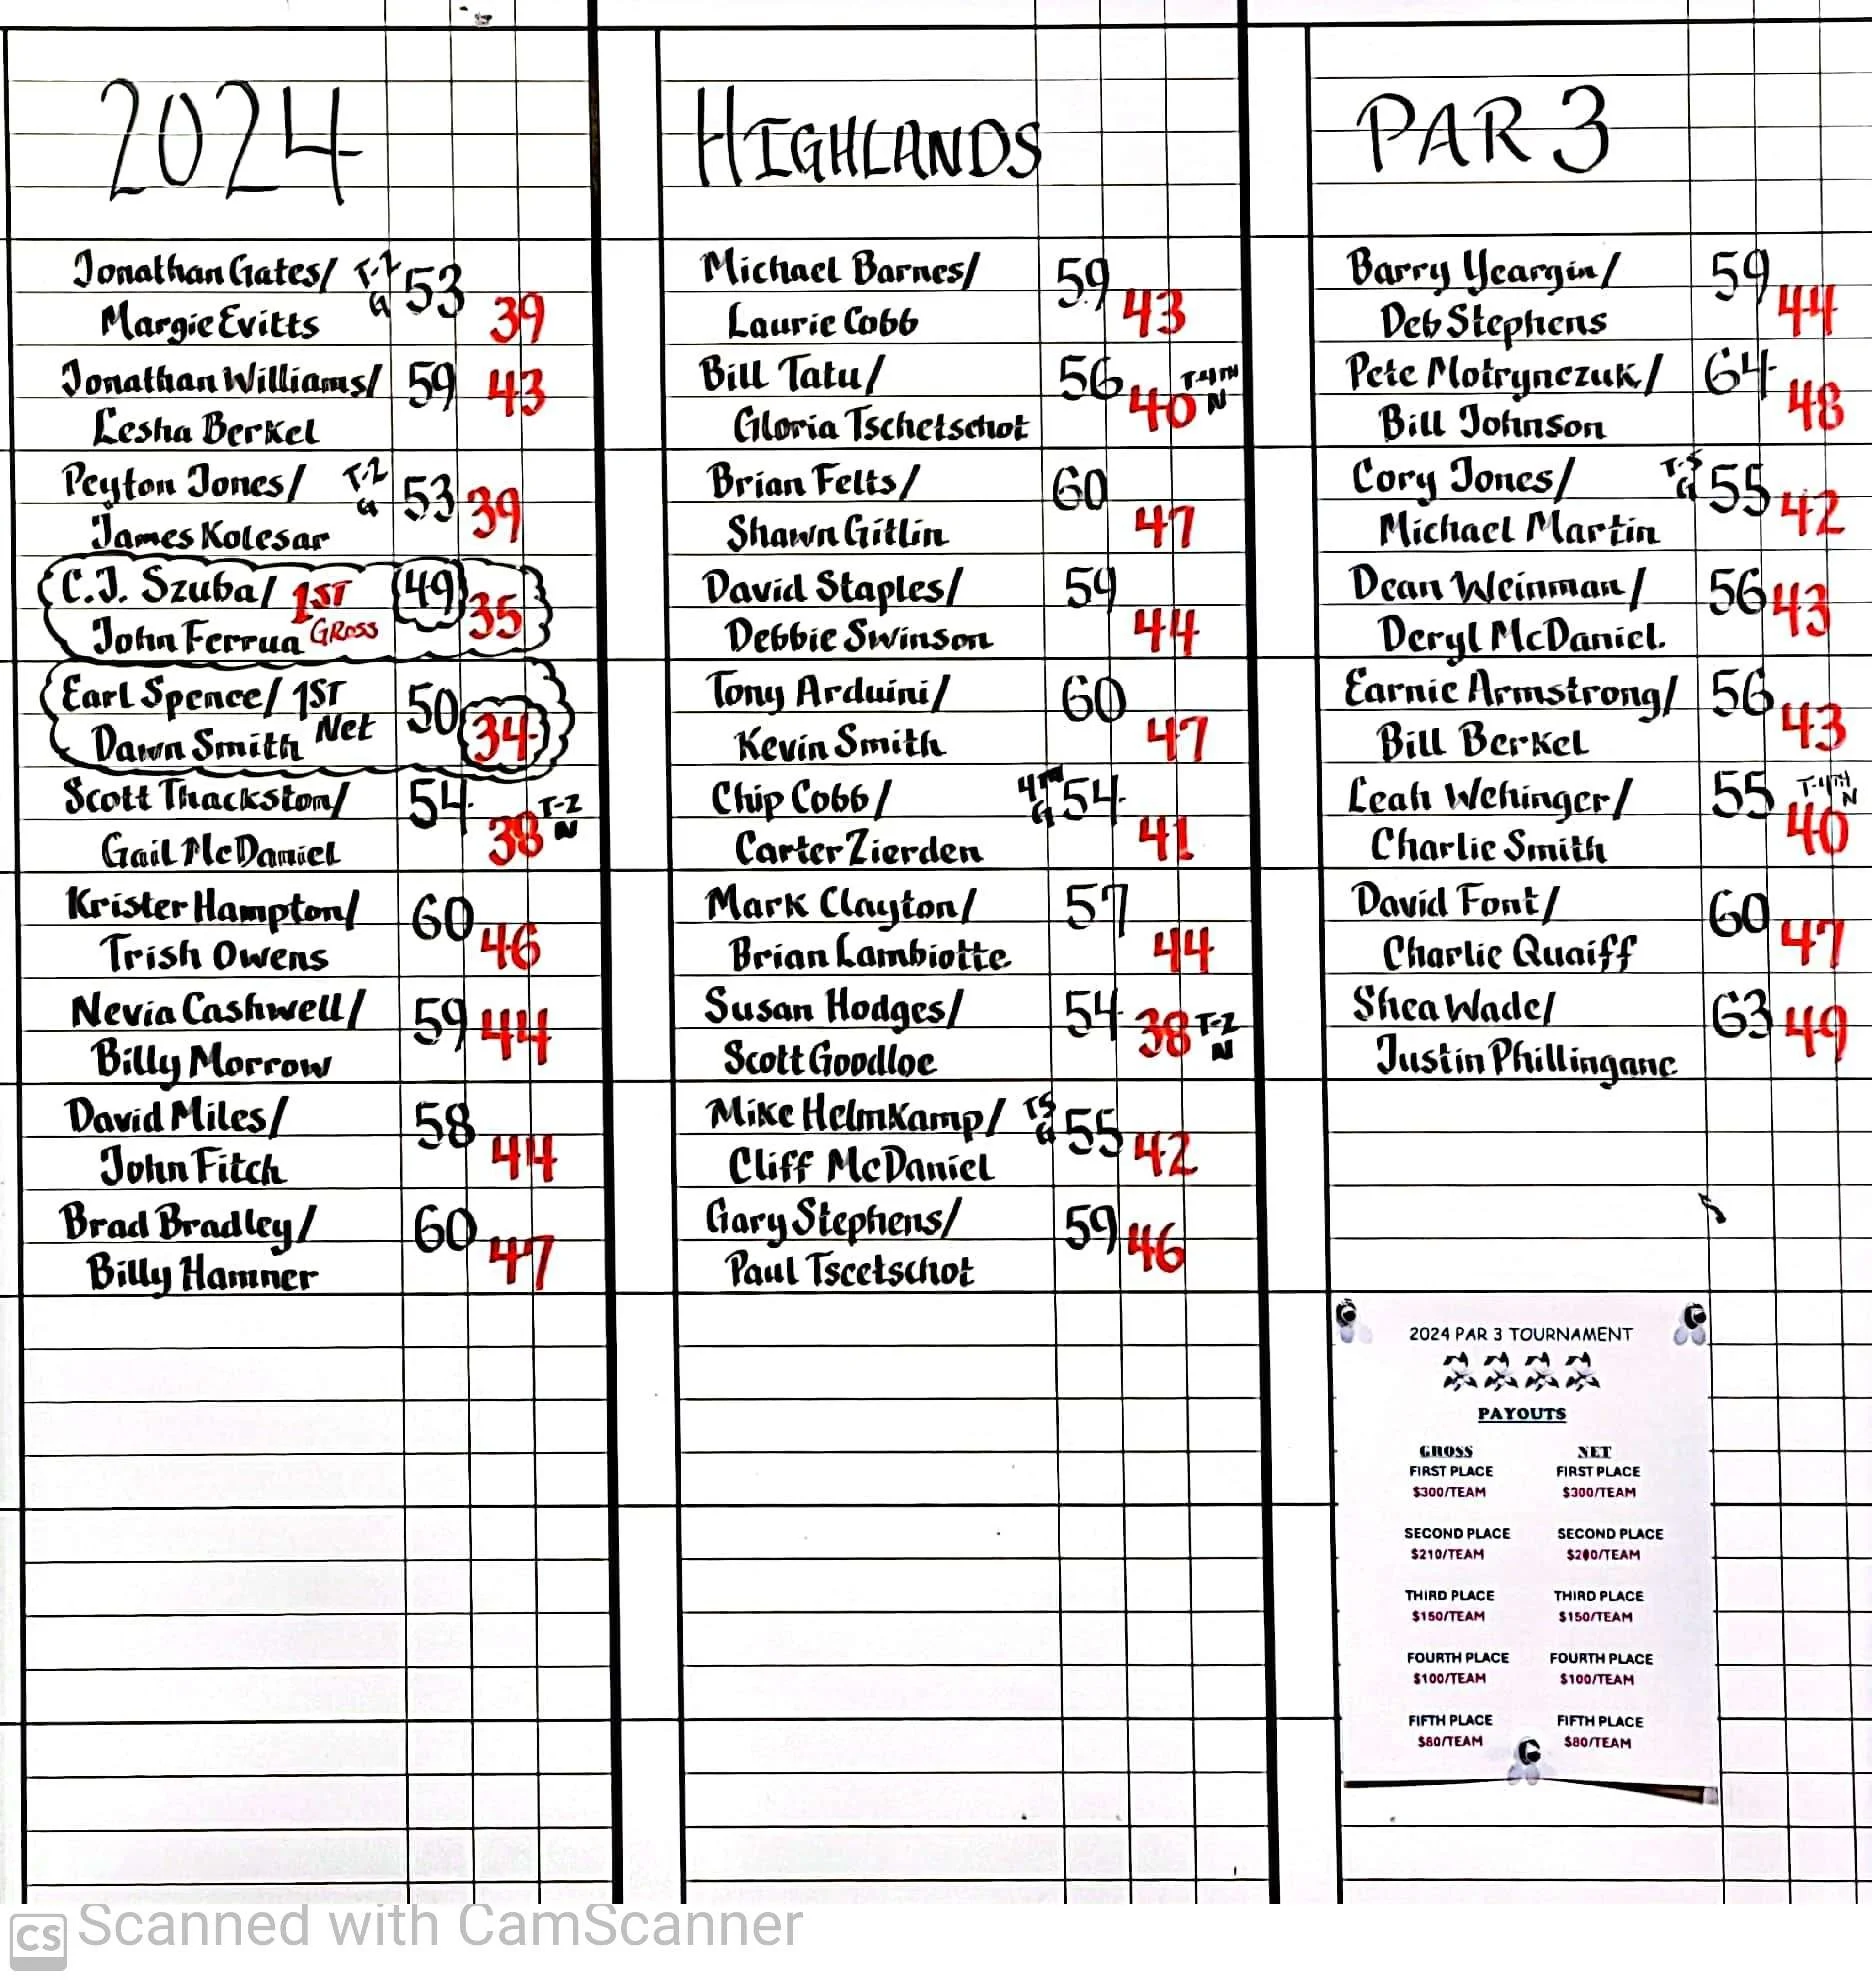 2024
HIGHLANDS
PAR 3
Jonathan Gates/ T-2 G 53 39
Margie Evitts
Jonathan Williams/ 59 43
Lesha Berkel
Peyton Jones/ T-2 G 53 39
James Kolesar
C.J. Szuba/ 1ST 49 35
John Ferrua GROSS
Earl Spence/ 1ST 50 34
Dawn Smith Net
Scott Thackston/ 54 38 T-2 N
Gail McDaniel
Krister Hampton/ 60 46
Trish Owens
Nevia Cashwell/ 59 44
Billy Morrow
David Miles/ 58 44
John Fitch
Brad Bradley/ 60 47
Billy Hamner
Michael Barnes/ 59 43
Laurie Cobb
Bill Tatu/ 56 40 T-4TH N
Gloria Tschetschot
Brian Felts/ 60 47
Shawn Gitlin
David Staples/ 59 44
Debbie Swinson
Tony Arduini/ 60 47
Kevin Smith
Chip Cobb/ 4TH G 54 41
Carter Zierden
Mark Clayton/ 57 44
Brian Lambiotte
Susan Hodges/ 54 38 T-2 N
Scott Goodloe
Mike Helmkamp/ T5 G 55 42
Cliff McDaniel
Gary Stephens/ 59 46
Paul Tscetschot
Barry Yeargin/ 59 44
Deb Stephens
Pete Motrynczuk/ 64 48
Bill Johnson
Cory Jones/ T-5 G 55 42
Michael Martin
Dean Weinman/ 56 43
Deryl McDaniel.
Earnie Armstrong/ 56 43
Bill Berkel
Leah Wehinger/ 55 40 T-4TH N
Charlie Smith
David Font/ 60 47
Charlie Quaiff
Shea Wade/ 63 49
Justin Phillingane
2024 PAR 3 TOURNAMENT
PAYOUTS
GROSS NET
FIRST PLACE FIRST PLACE
$300/TEAM $300/TEAM
SECOND PLACE SECOND PLACE
$210/TEAM $200/TEAM
THIRD PLACE THIRD PLACE
$150/TEAM $150/TEAM
FOURTH PLACE FOURTH PLACE
$100/TEAM $100/TEAM
FIFTH PLACE FIFTH PLACE
$80/TEAM $80/TEAM
CS Scanned with CamScanner